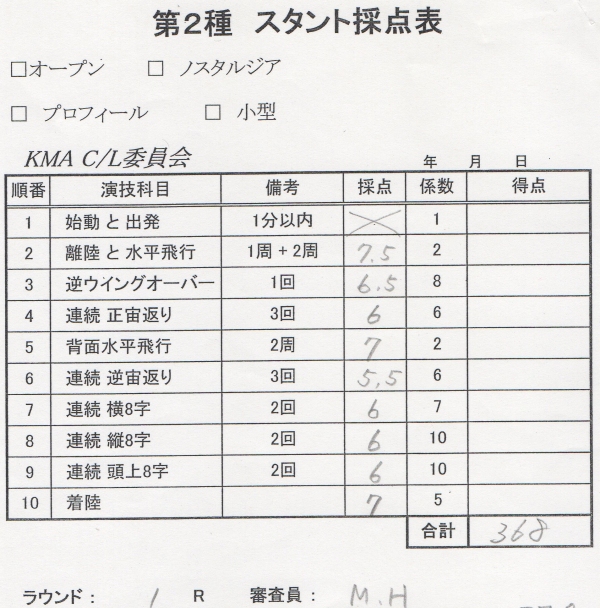 第2種 スタント採点表
□オープン □ ノスタルジア
□ プロフィール □ 小型
KMA C/L委員会 年 月 日
順番 演技科目 備考 採点 係数 得点
1 始動 と 出発 1分以内 1
2 離陸 と 水平飛行 1周 + 2周 7.5 2
3 逆ウイングオーバー 1回 6.5 8
4 連続 正宙返り 3回 6 6
5 背面水平飛行 2周 7 2
6 連続 逆宙返り 3回 5.5 6
7 連続 横8字 2回 6 7
8 連続 縦8字 2回 6 10
9 連続 頭上8字 2回 6 10
10 着陸 7 5
合計 368
ラウンド： 1 R 審査員： M.H